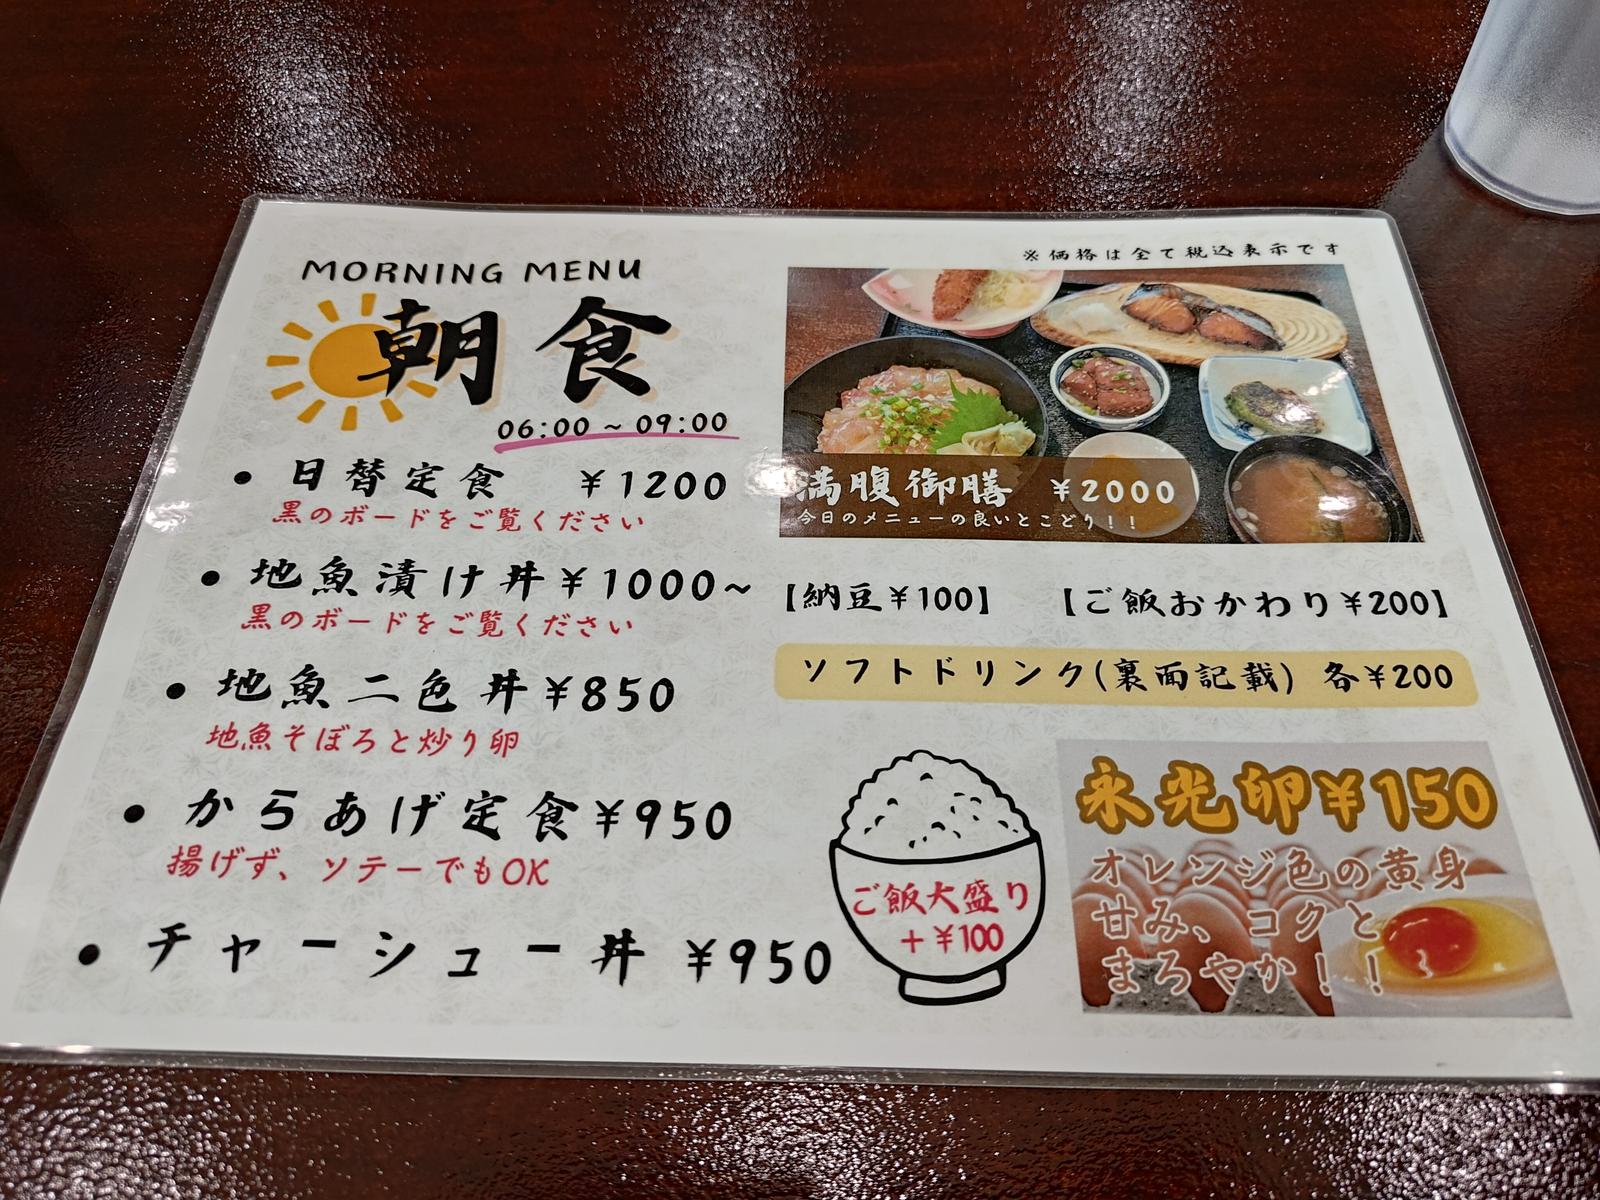 ※価格は全て税込表示です
MORNING MENU
朝食
06:00～09:00
• 日替定食 ¥1200
黒のボードをご覧ください
• 地魚漬け丼¥1000~
黒のボードをご覧ください
• 地魚二色丼¥850
地魚そぼろと炒り卵
• からあげ定食¥950
揚げず、ソテーでもOK
• チャーシュー丼 ¥950
満腹御膳 ¥2000
今日のメニューの良いとこどり！！
【納豆¥100】 【ご飯おかわり¥200】
ソフトドリンク(裏面記載) 各¥200
ご飯大盛り
+¥100
永光卵¥150
オレンジ色の黄身
甘み、コクと
まろやか！！